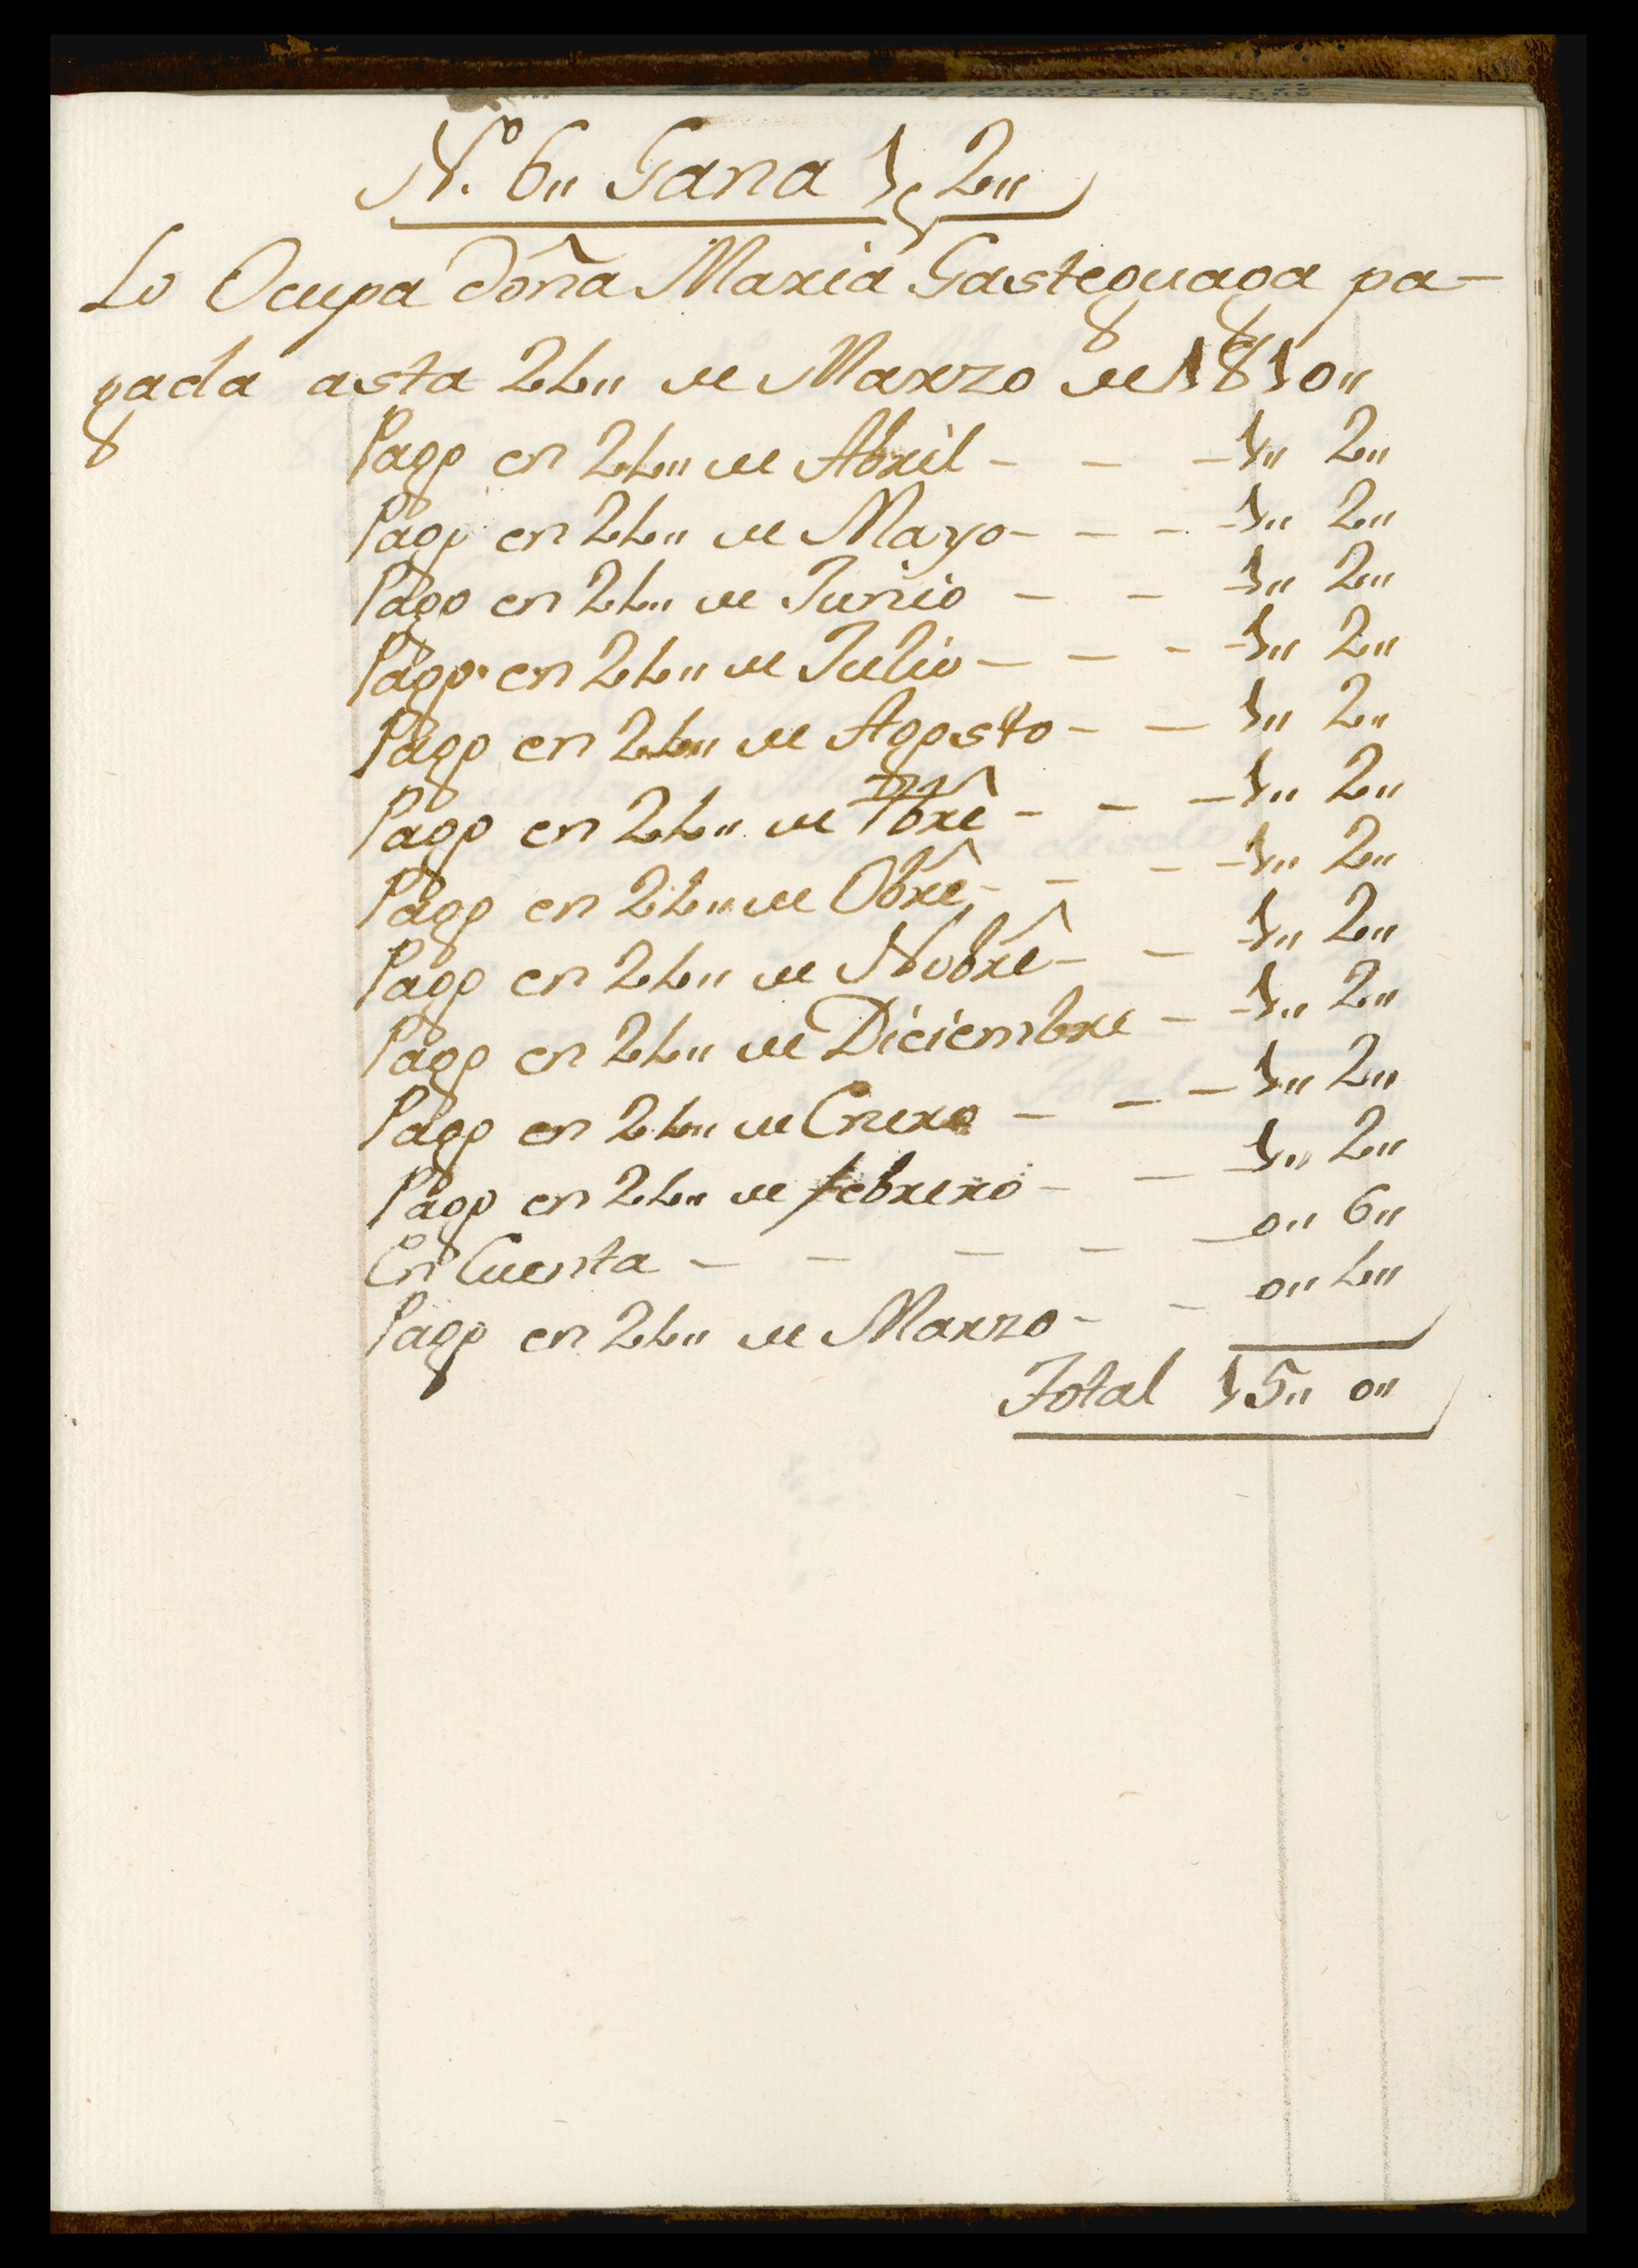 Nº. 6,, Gana 1,, 2,,
Lo Ocupa doña Maria Gasteguaga pa-
gada asta 24,, de Marzo de 1810,,
Pago en 24,, de Abril - - - 1,, 2,,
Pago en 24,, de Mayo - - - 1,, 2,,
Pago en 24,, de Junio - - 1,, 2,,
Pago en 24,, de Julio - - - 1,, 2,,
Pago en 24,, de Agosto - - 1,, 2,,
Pago en 24,, de 7brê - - - 1,, 2,,
Pago en 24,, de Obrê - - - 1,, 2,,
Pago en 24,, de Nobrê - - 1,, 2,,
Pago en 24,, de Diciembre - 1,, 2,,
Pago en 24,, de Enero - - - 1,, 2,,
Pago en 24,, de febrero - - 1,, 2,,
En Cuenta - - - - - 0,, 6,,
Pago en 24,, de Marzo - - 0,, 4,,
Total 15,, 0,,